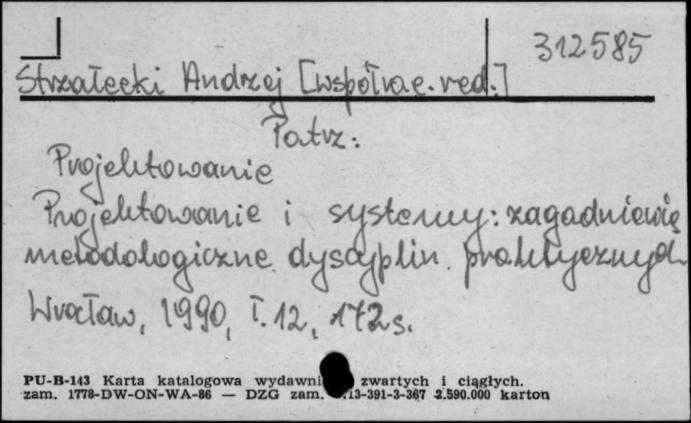 312585
Strzałecki Andrzej [współprac. red.]
Patrz:
Projektowanie
Projektowanie i systemy: zagadnienia
metodologiczne dyscyplin praktycznych
Wrocław, 1990, T. 12, 172 s.
PU-B-143 Karta katalogowa wydawni zwartych i ciągłych.
zam. 1778-DW-ON-WA-86 — DZG zam. 13-391-3-367 2.590.000 karton